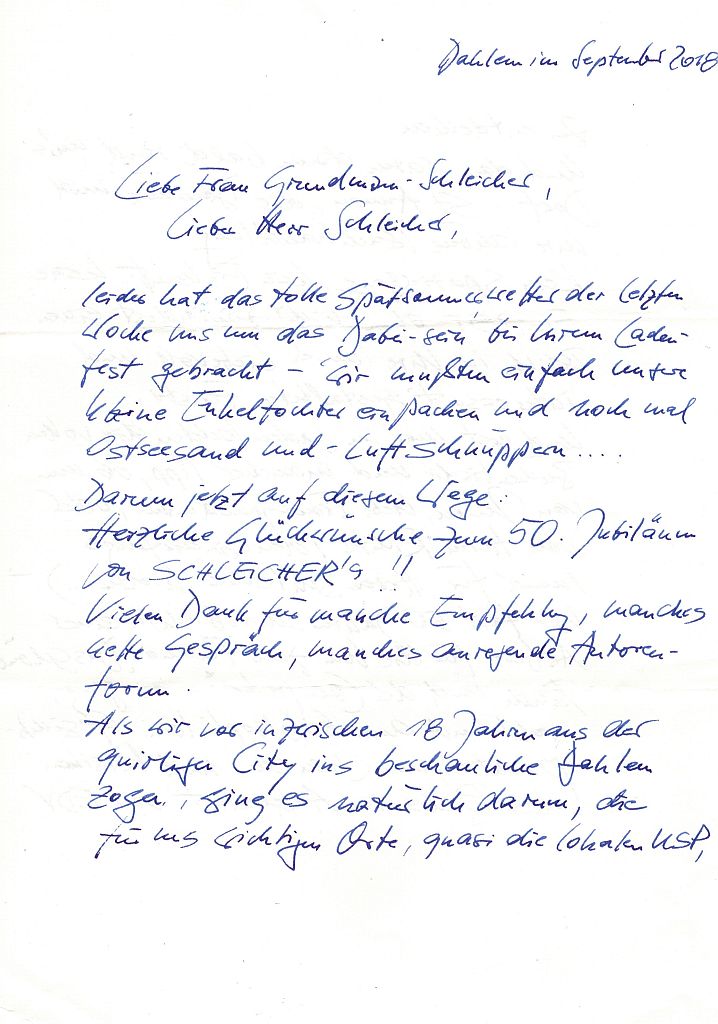 Dahlem im September 2018
Liebe Frau Grundmann-Schleicher,
Lieber Herr Schleicher,
leider hat das tolle Spätsommerwetter der letzten
Woche uns um das Dabei-sein bei Ihrem Laden-
fest gebracht – wir mußten einfach unsere
kleine Enkeltochter einpacken und noch mal
Ostseesand und -Luft schnuppern....
Darum jetzt auf diesem Wege:
Herzliche Glückwünsche zum 50. Jubiläum
von SCHLEICHER's !!
Vielen Dank für manche Empfehlung, manches
nette Gespräch, manches anregende Autoren-
forum.
Als wir vor inzwischen 18 Jahren aus der
quirligen City ins beschauliche Dahlem
zogen, ging es natürlich darum, die
für uns wichtigen Orte, quasi die lokalen USP,